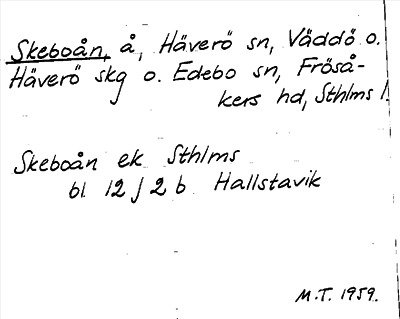 Skeboån, å, Häverö sn, Väddö o.
Häverö skg o. Edebo sn, Fröså-
kers hd, Sthlms l.
Skeboån ek Sthlms
bl 12 J 2 b Hallstavik
M.T. 1959.